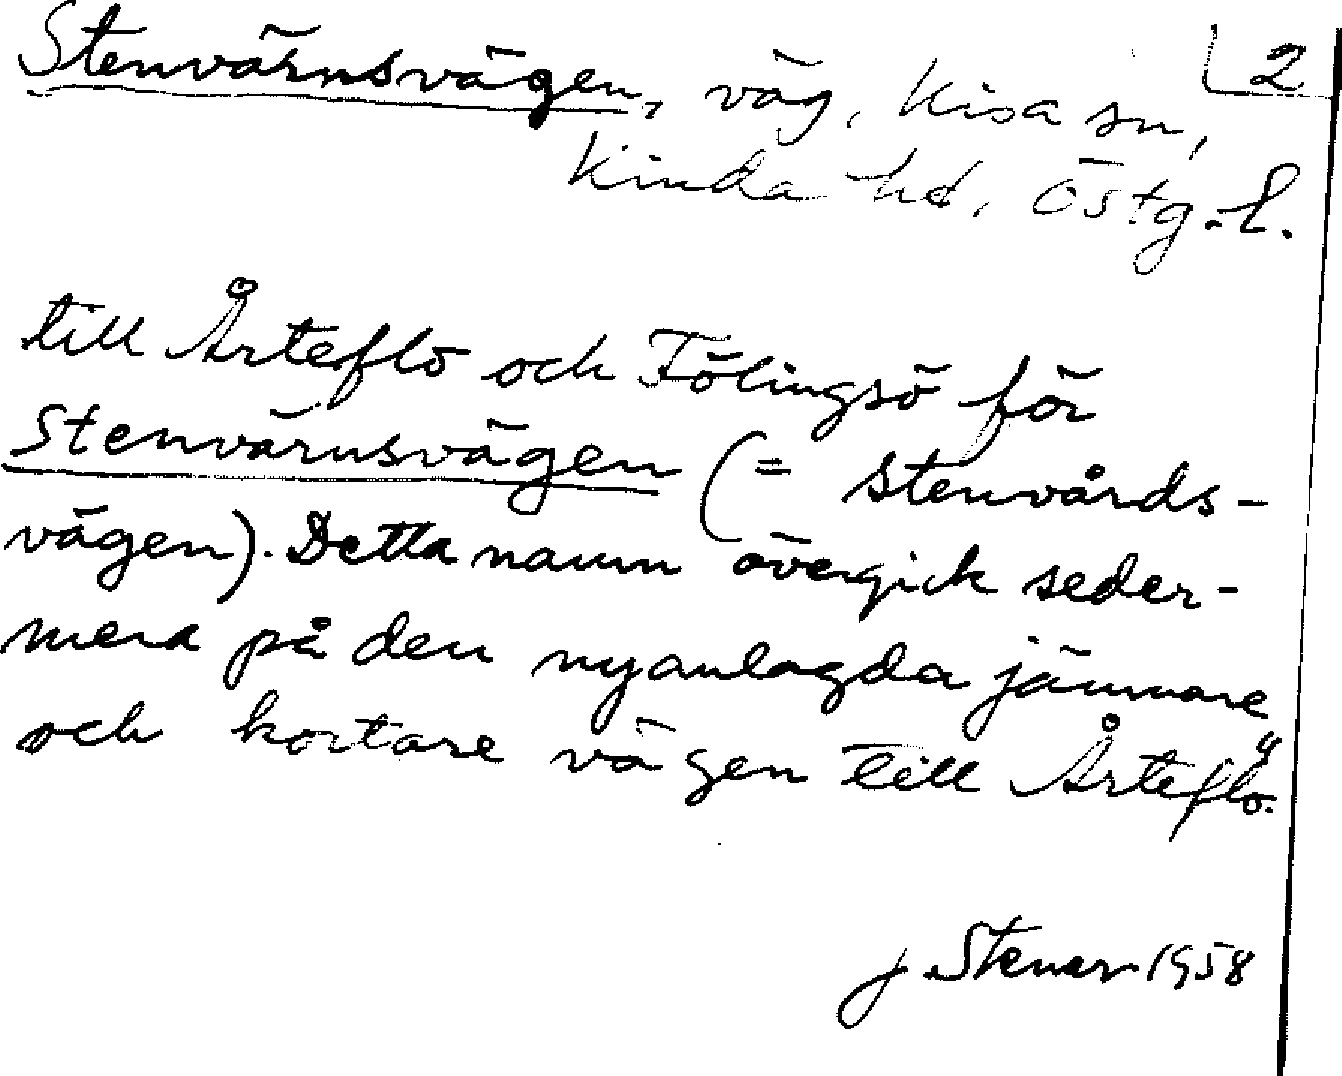 Stenvärnsvägen, väg, Kisa sn, 2
Kinda hd, Östg. l.
till Årteflo och Fölingsö för
Stenvärnsvägen (= stenvårds-
vägen). Detta namn övergick seder-
mera på den nyanlagda jämnare
och kortare vägen till Årteflo."
J. Stener 1958